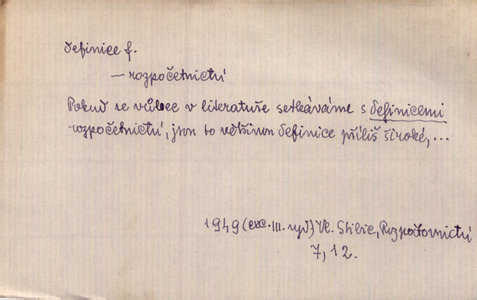 definice f.
— rozpočetnictví
Pokud se vůbec v literatuře setkáváme s definicemi
rozpočetnictví, jsou to většinou definice příliš široké, ...
1949 (exc. III. vyd) Vl. Stibic, Rozpočtovnictví
7, 12.